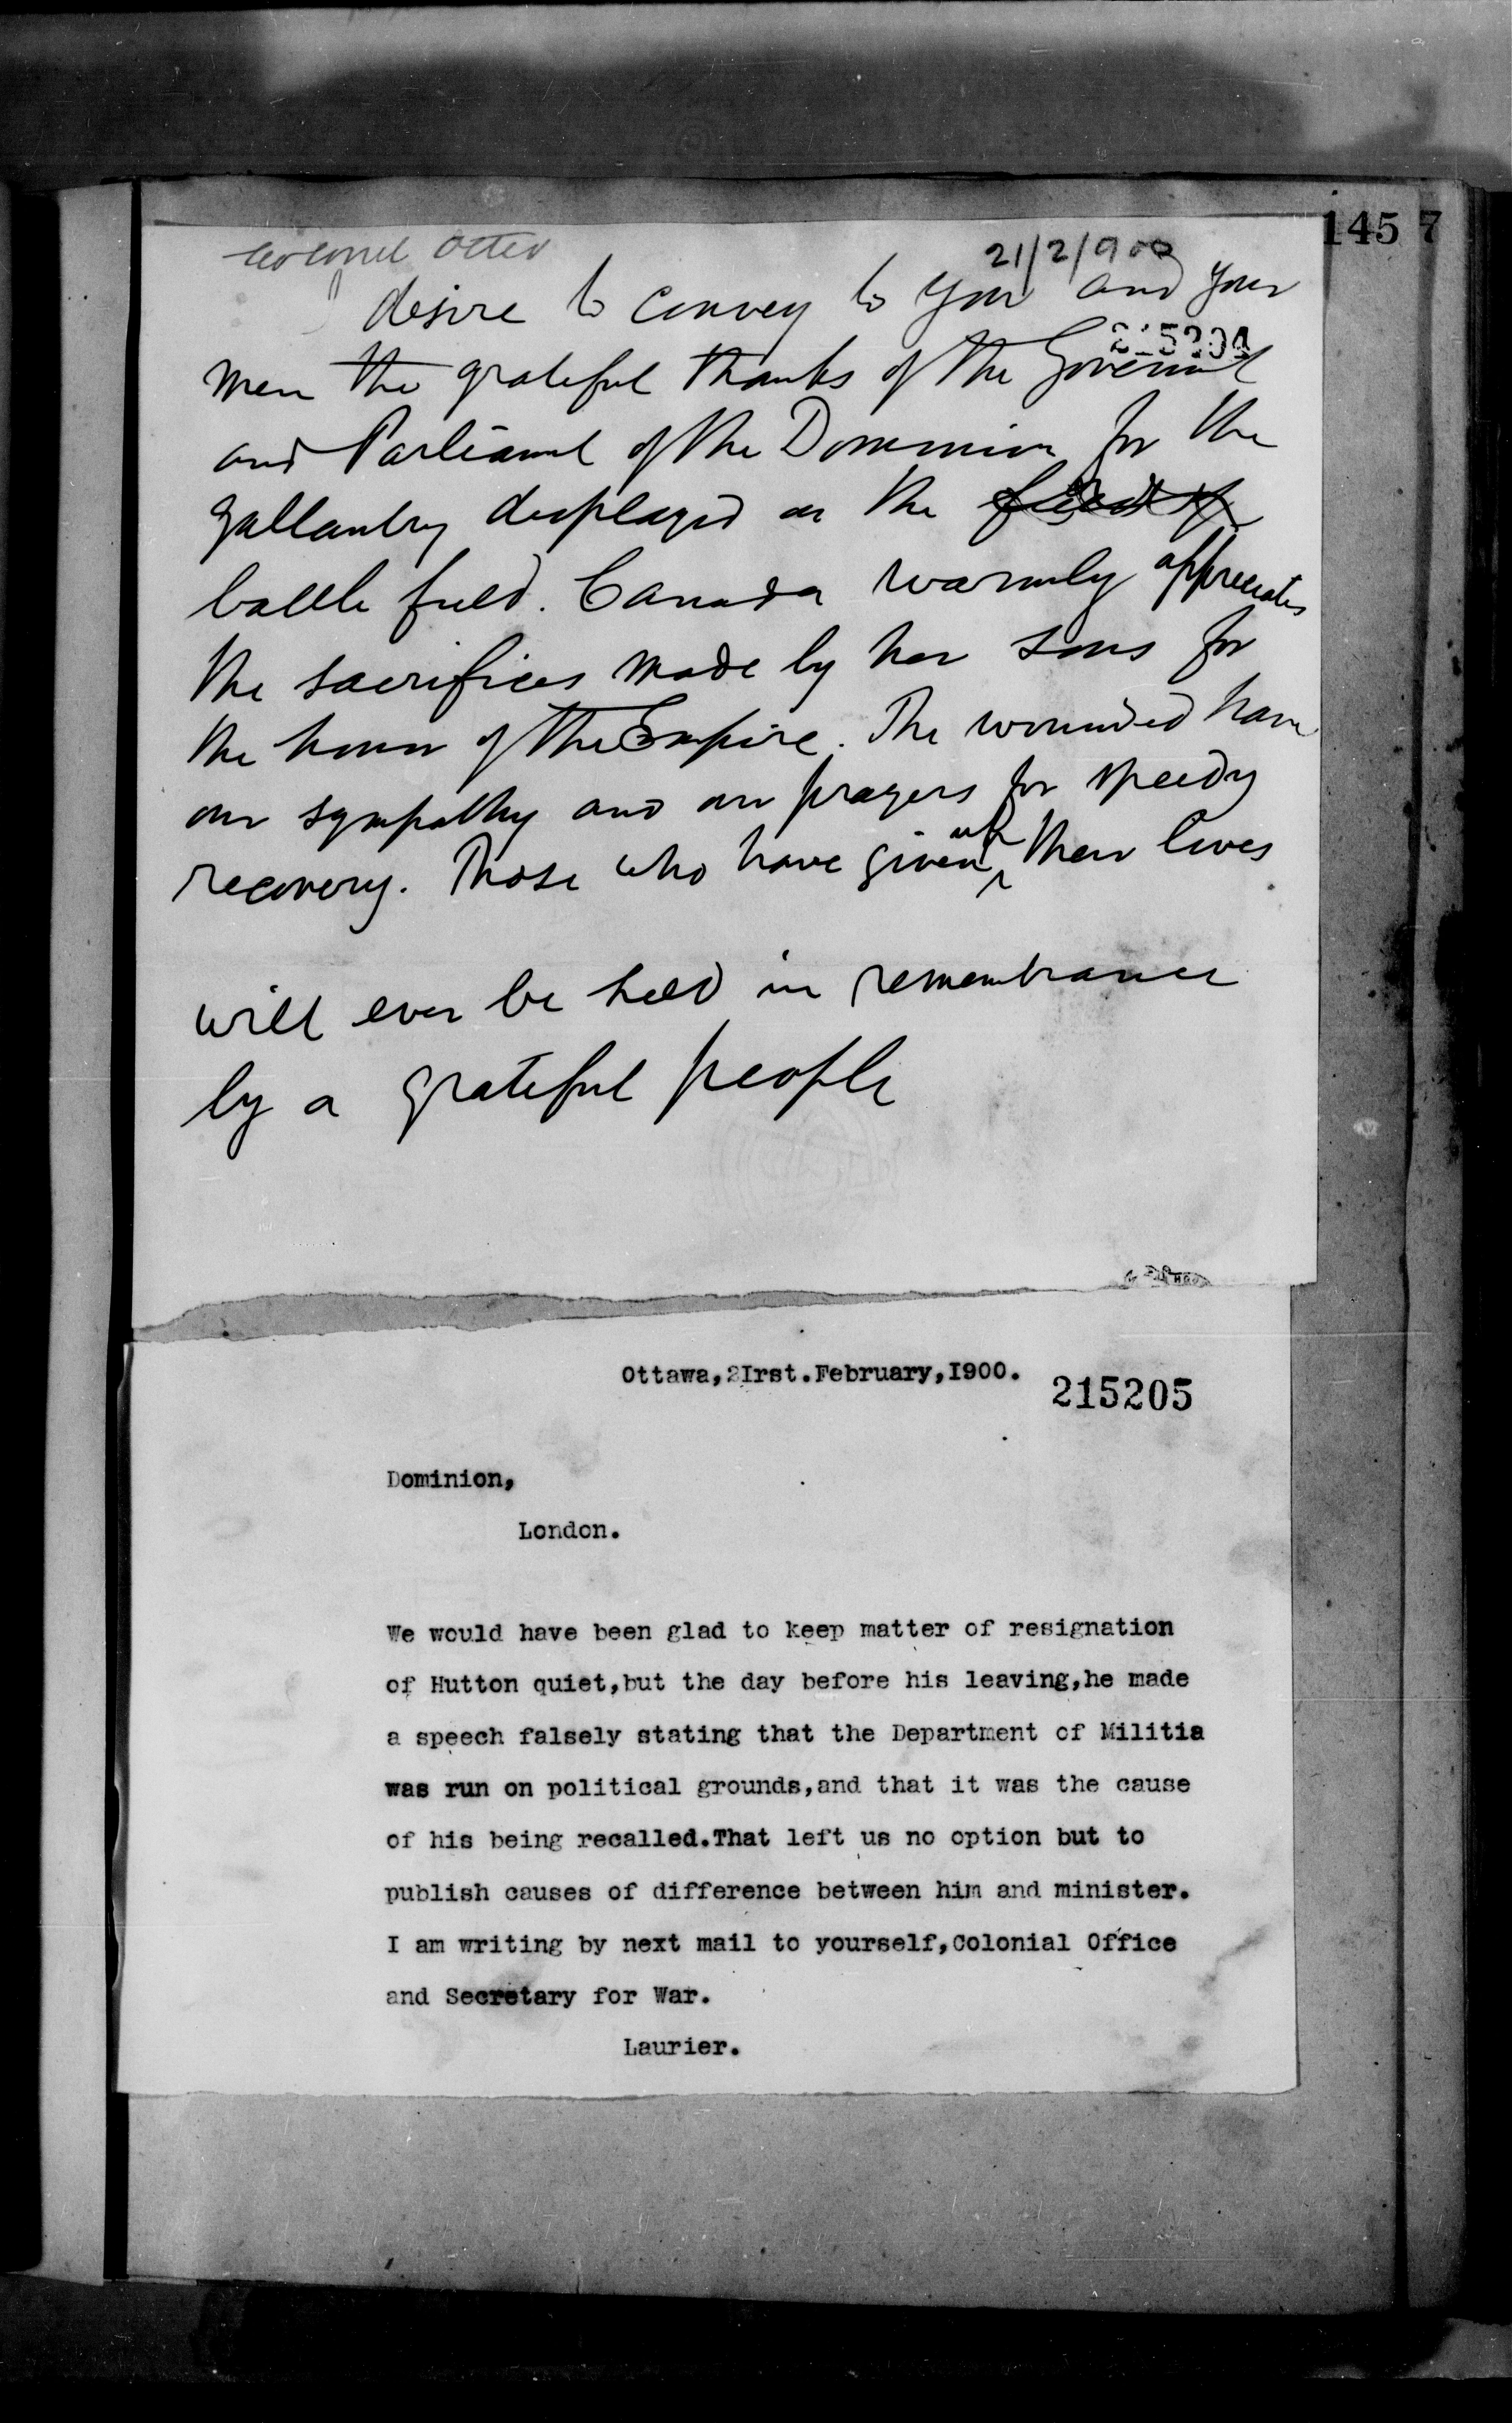 145 7
Colonel Otter
21/2/900
I desire to convey to you and your
215204
men the grateful thanks of the Government
and Parliament of the Dominion for the
gallantry displayed on the field of
battle field. Canada warmly appreciates
the sacrifices made by her sons for
the honor of the Empire. The wounded have
our sympathy and our prayers for speedy
recovery. Those who have given up their lives
will ever be held in remembrance
by a grateful people
Ottawa,2Irst.February,I900.
215205
Dominion,
London.
We would have been glad to keep matter of resignation
of Hutton quiet,but the day before his leaving,he made
a speech falsely stating that the Department of Militia
was run on political grounds,and that it was the cause
of his being recalled.That left us no option but to
publish causes of difference between him and minister.
I am writing by next mail to yourself,Colonial Office
and Secretary for War.
Laurier.